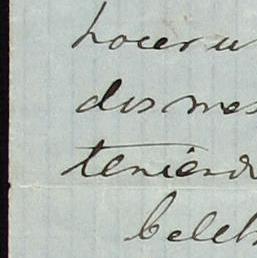 hacer u
dos mes
teniend
celeb